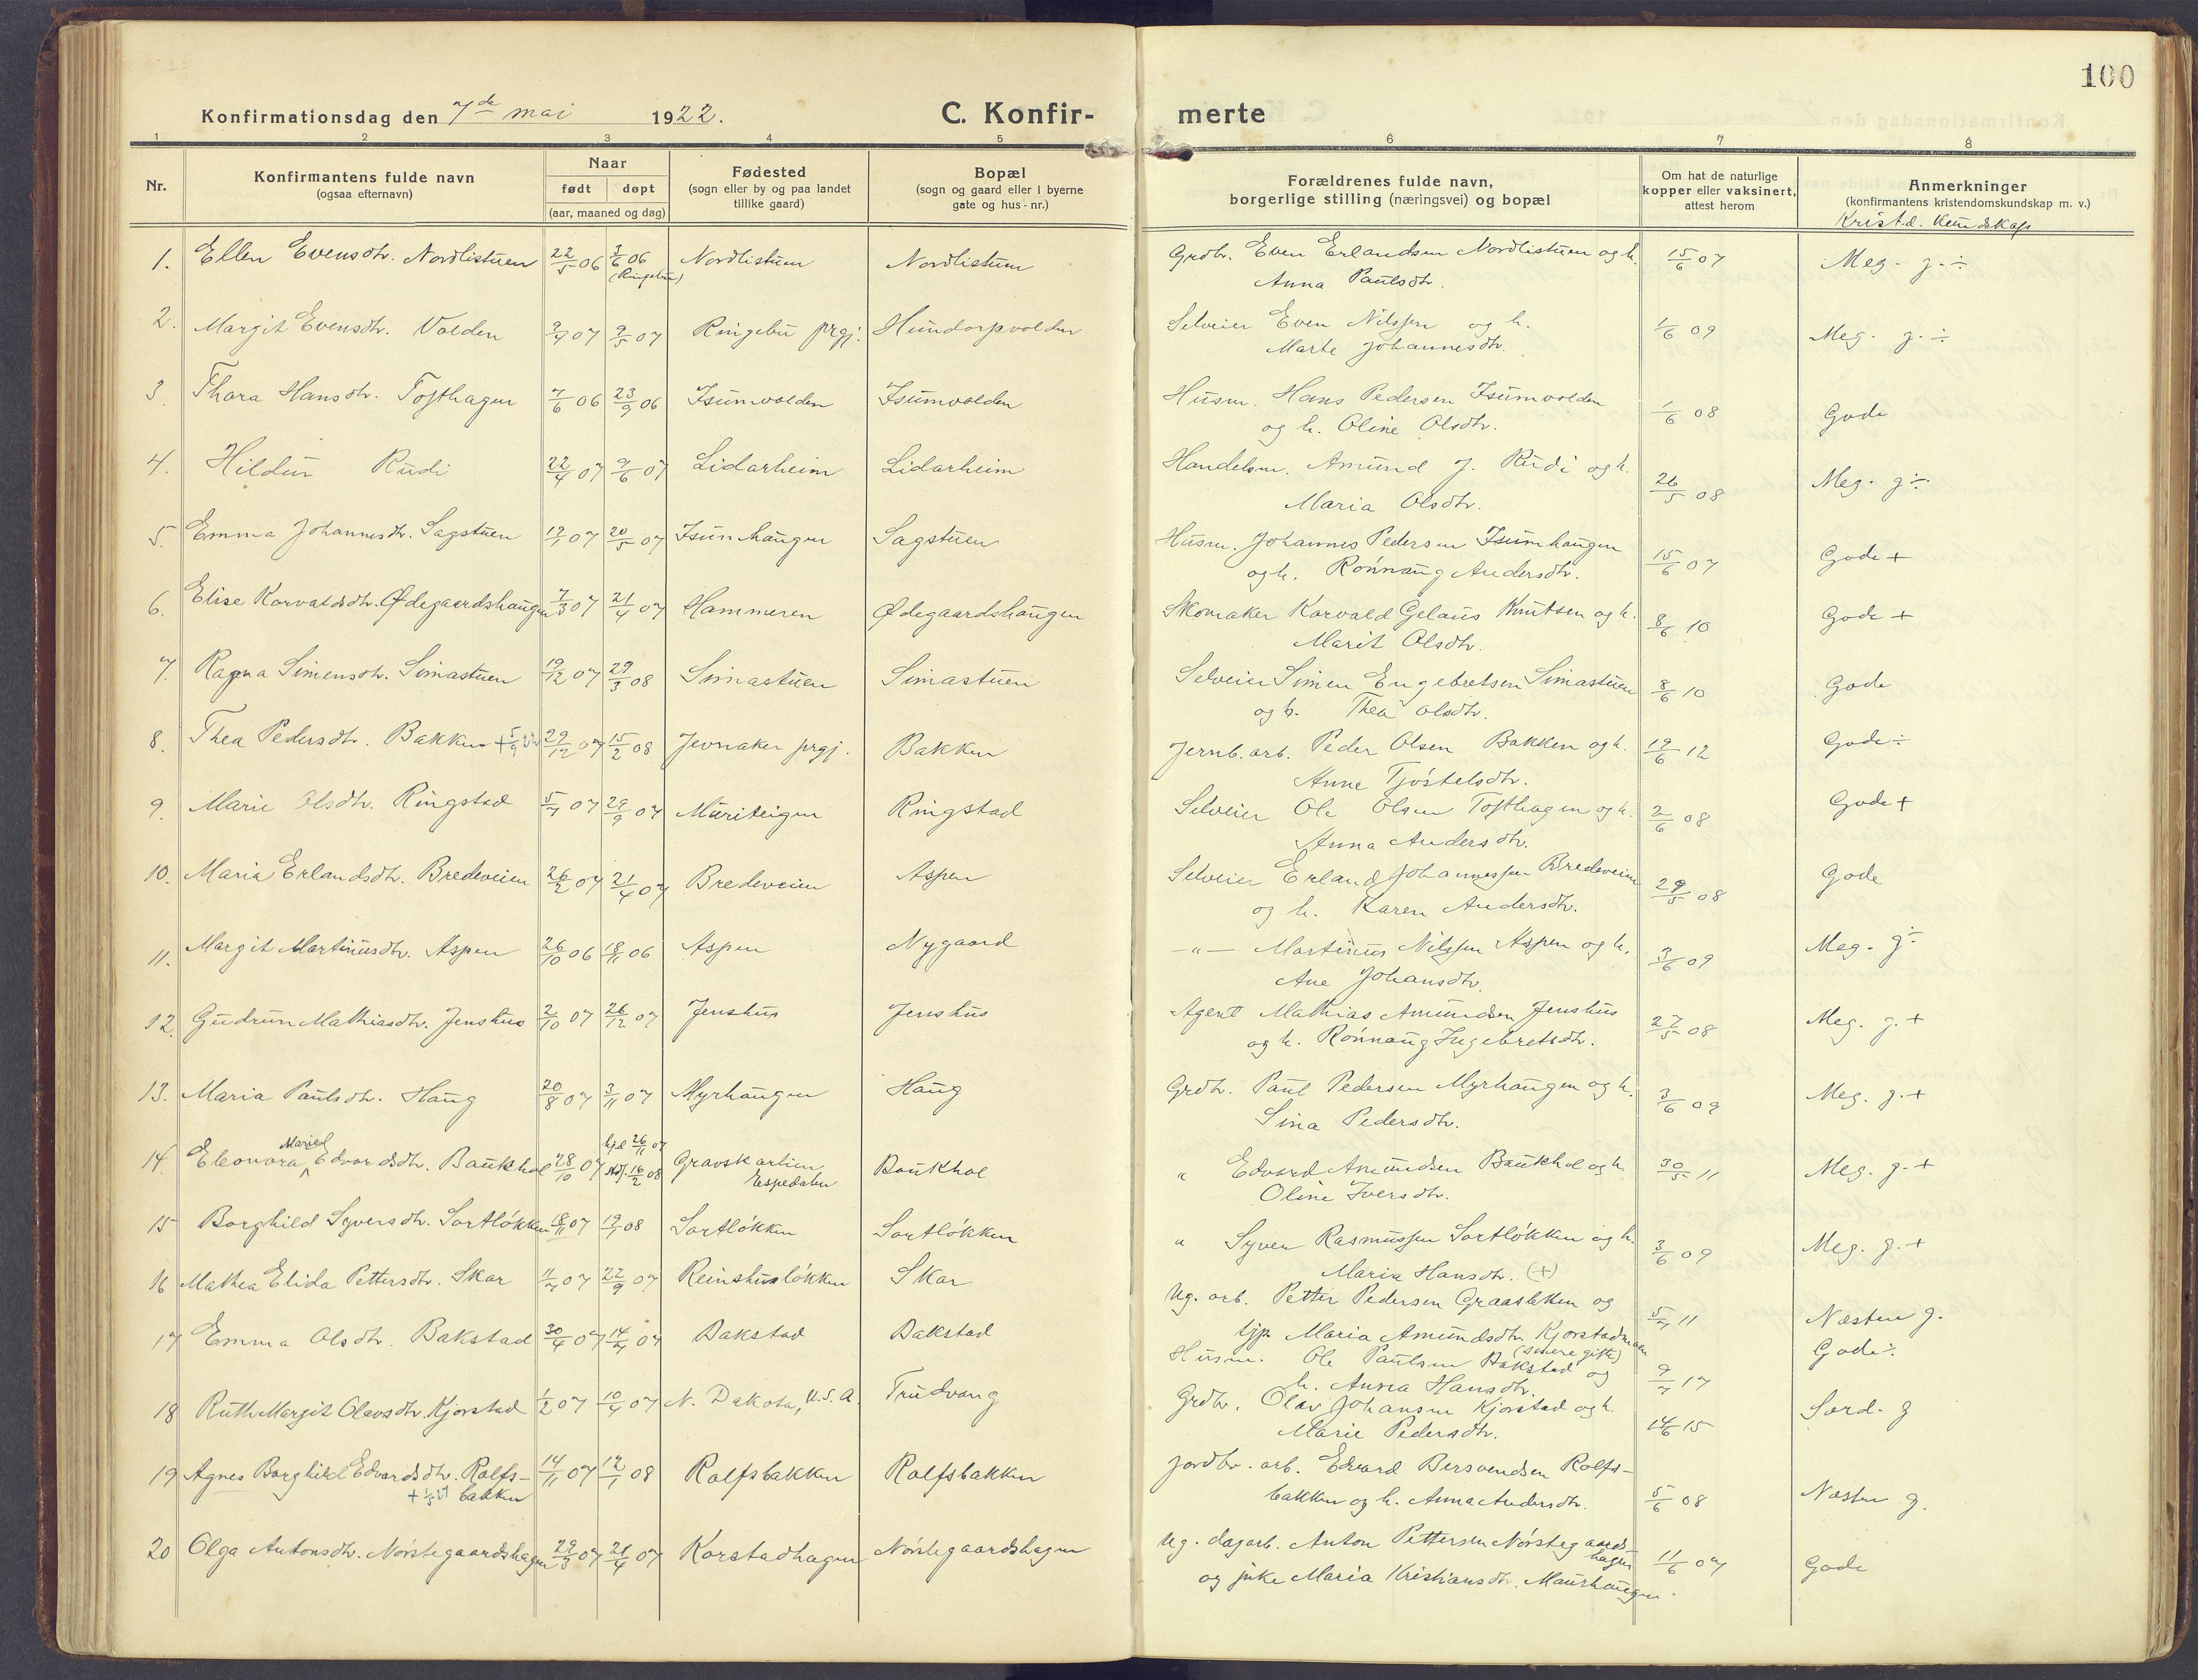 100
Konfirmationsdag den 7de mai 1922.
C. Konfir-
merte
1 2 3 4 5 6 7 8
Nr.
Konfirmantens fulde navn
(ogsaa efternavn)
Naar
født døpt
(aar, maaned og dag)
Fødested
(sogn eller by og paa landet
tillike gaard)
Bopæl
(sogn og gaard eller i byerne
gate og hus-nr.)
Forældrenes fulde navn,
borgerlige stilling (næringsvei) og bopæl
Om hat de naturlige
kopper eller vaksinert,
attest herom
Anmerkninger
(konfirmantens kristendomskundskap m. v.)
Kristd. kundskap
1. Ellen Evensdtr. Nordlistuen 22/5 06 3/6 06 (Ringebu) Nordlistuen Nordlistuen Grdbr. Even Erlandsen Nordlistuen og h. 15/6 07 Meg. g. ÷
Anna Paulsdtr.
2. Margit Evensdtr. Volden 9/4 07 9/5 07 Ringebu prgj. Hundorpvolden Selveier Even Nilssen og h. 1/6 09 Meg. g. ÷
Marte Johannesdtr.
3. Thora Hansdtr. Tofthagen 7/6 06 23/9 06 Isumvolden Isumvolden Husm. Hans Pedersen Isumvolden 1/6 08 Gode
og h. Oline Olsdtr.
4. Hildur Rudi 22/4 07 9/6 07 Lidarheim Lidarheim Handelsm. Amund J. Rudi og h. 26/5 08 Meg. g ÷
Maria Olsdtr.
5. Emma Johannesdtr. Sagstuen 12/1 07 20/5 07 Isumhaugen Sagstuen Husm. Johannes Pedersen Isumhaugen 15/6 07 Gode +
og h. Rönnaug Andersdtr.
6. Elise Korvaldsdtr. Ødegaardshaugen 7/3 07 21/4 07 Hammeren Ødegaardshaugen Skomaker Korvald Gelaus Knutsen og h. 8/6 10 Gode +
Marit Olsdtr.
7. Ragna Simensdtr. Simastuen 19/12 07 29/3 08 Simastuen Simastuen Selveier Simen Engebretsen Simastuen 8/6 10 Gode
og h. Thea Olsdtr.
8. Thea Pedersdtr. Bakken + 5/9 22 29/12 07 15/2 08 Jevnaker prgj. Bakken Jernb. arb. Peder Olsen Bakken og h. 19/6 12 Gode ÷
Anne Tjöstelsdtr.
9. Marie Olsdtr. Ringstad 5/7 07 29/9 07 Muriteigen Ringstad Selveier Ole Olsen Tofthagen og h. 2/6 08 Gode +
Anna Andersdtr.
10. Maria Erlandsdtr. Bredeveien 26/2 07 21/4 07 Bredeveien Aspen Selveier Erland Johannessen Bredeveien 29/5 08 Gode
og h. Karen Andersdtr.
11. Margit Martinusdtr. Aspen 26/10 06 18/11 06 Aspen Nygaard -"- Martinus Nilssen Aspen og h. 3/6 09 Meg. g ÷
Ane Johansdtr.
12. Gudrun Mathiasdtr. Jenshus 2/10 07 26/12 07 Jenshus Jenshus Agent Mathias Amundsen Jenshus 27/5 08 Meg. g. +
og h. Rönnaug Ingebretsdtr.
13. Maria Paulsdtr. Haug 20/8 07 3/11 07 Myrhaugen Haug Grdbr. Paul Pedersen Myrhaugen og h. 3/6 09 Meg. g. +
Sina Pedersdtr.
14. Eleonora Marie Edvardsdtr. Baukhol 28/10 07 hjd 26/11 07 stdf. 16/2 08 Gravskarlien Espedalen Baukhol " Edvard Amundsen Baukhol og h. 30/5 11 Meg. g. +
Oline Iversdtr.
15 Borghild Syversdtr. Sortlökken 18/11 07 19/1 08 Sortlökken Sortlökken " Syver Rasmussen Sortlökken og h. 3/6 09 Meg. g. +
Maria Hansdtr. (+)
16 Mathea Elida Pettersdtr. Skar 11/7 07 22/9 07 Reinshuslökken Skar Ug. arb. Petter Pedersen Graabakken og 5/7 11 Næsten g.
tjp. Maria Amundsdtr. Kjorstadmoen (senere gift)
17 Emma Olsdtr. Bakstad 30/4 07 14/7 07 Bakstad Bakstad Husm. Ole Paulsen Bakstad og 9/7 17 Gode ÷
h. Anna Hansdtr.
18 Ruth Margit Olavsdtr. Kjorstad 1/2 07 10/4 07 N. Dakota, U.S.A. Trudvang Grdbr. Olav Johansen Kjorstad og h. 14/6 15 Særd. g
Marie Pedersdtr.
19 Agnes Borghild Edvardsdtr. Rolfs- 14/11 07 12/1 08 Rolfsbakken Rolfsbakken Jordbr. arb. Edvard Bersvendsen Rolfs- 5/6 08 Næsten g.
bakken bakken og h. Anna Andersdtr.
20 Olga Antonsdtr. Nörstegaardshagen 29/3 07 21/4 07 Korstadhagen Nörstegaardshagen Ug. dagarb. Anton Pettersen Nörstegaards- hagen 11/6 07 Gode
og pike Maria Kristiansdtr. Maurhaugen.